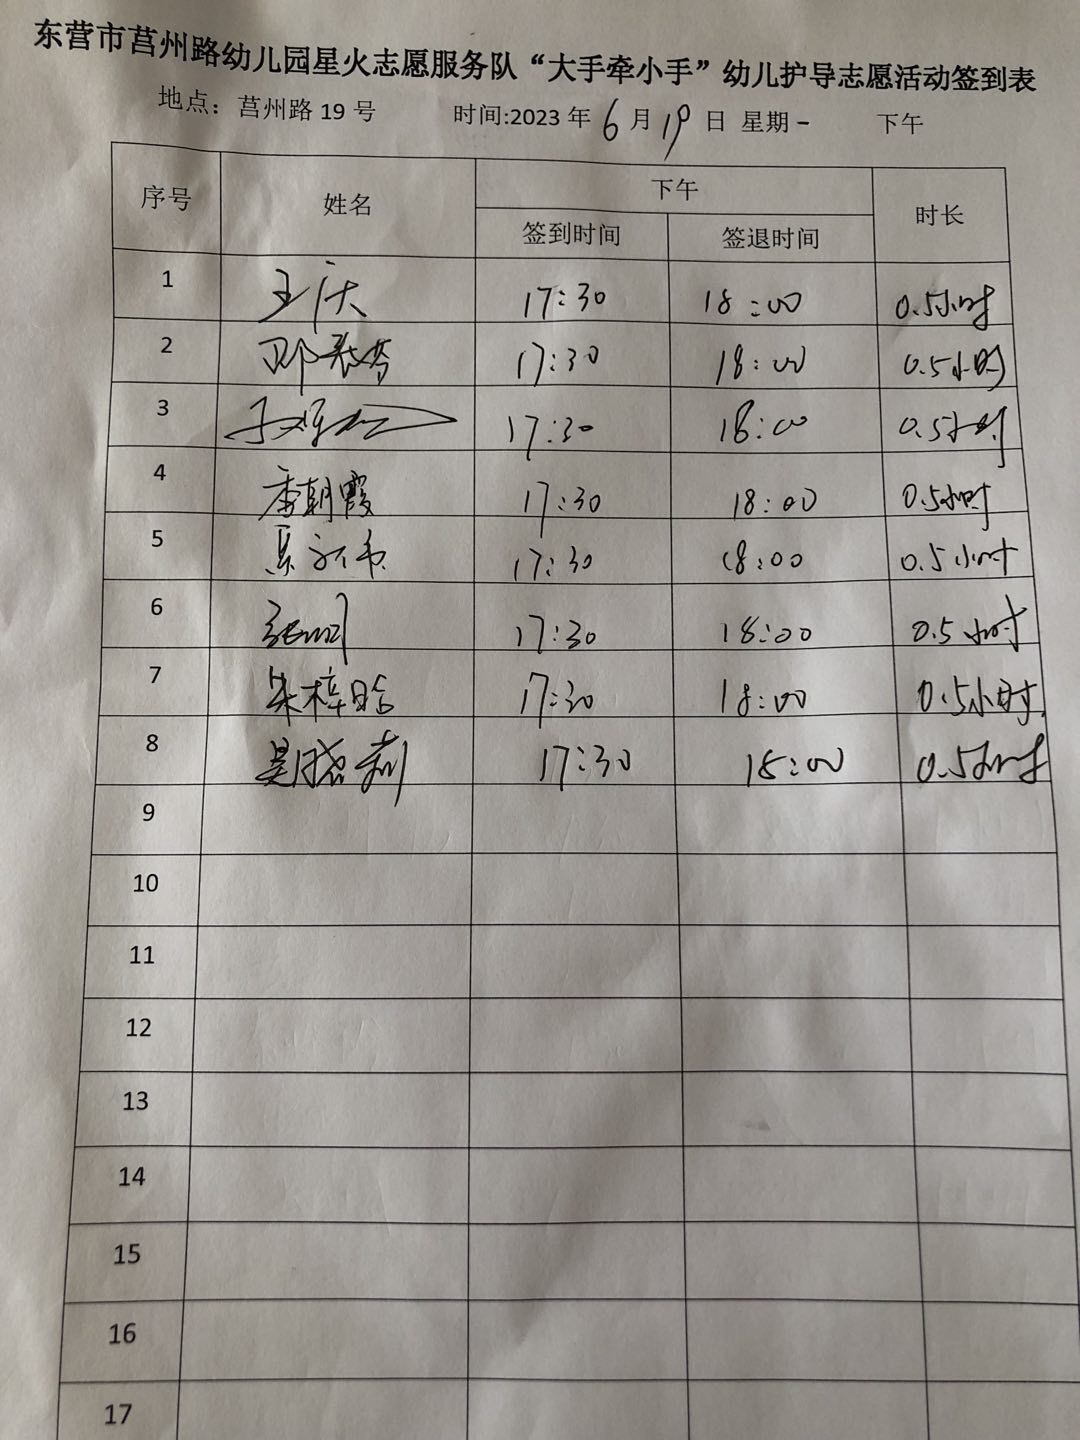 东营市莒州路幼儿园星火志愿服务队“大手牵小手”幼儿护导志愿活动签到表
地点：莒州路 19 号 时间:2023 年 6 月 19 日 星期一 下午
序号 姓名 下午 时长
签到时间 签退时间
1 王庆 17:30 18:00 0.5小时
2 17:30 18:00 0.5小时
3 17:30 18:00 0.5小时
4 李朝霞 17:30 18:00 0.5小时
5 17:30 18:00 0.5小时
6 17:30 18:00 0.5小时
7 朱梓晗 17:30 18:00 0.5小时
8 吴晓莉 17:30 18:00 0.5小时
9
10
11
12
13
14
15
16
17